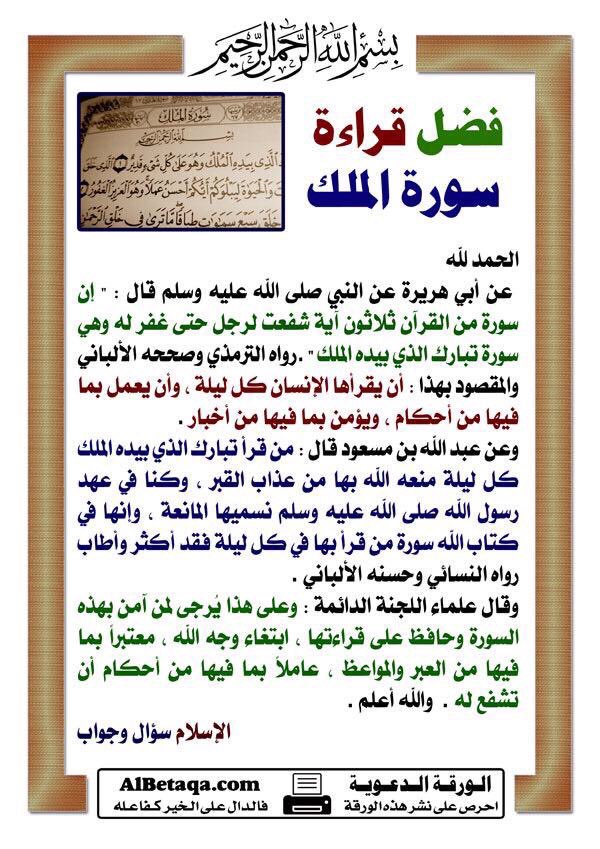 بسم الله الرحمن الرحيم
فضل قراءة
سورة الملك
سورة الملك
بسم الله الرحمن الرحيم
الحمد لله
عن أبي هريرة عن النبي صلى الله عليه وسلم قال : " إن
سورة من القرآن ثلاثون آية شفعت لرجل حتى غفر له وهي
سورة تبارك الذي بيده الملك" .رواه الترمذي وصححه الألباني
والمقصود بهذا : أن يقرأها الإنسان كل ليلة ، وأن يعمل بما
فيها من أحكام ، ويؤمن بما فيها من أخبار .
وعن عبد الله بن مسعود قال : من قرأ تبارك الذي بيده الملك
كل ليلة منعه الله بها من عذاب القبر ، وكنا في عهد
رسول الله صلى الله عليه وسلم نسميها المانعة ، وإنها في
كتاب الله سورة من قرأ بها في كل ليلة فقد أكثر وأطاب
رواه النسائي وحسنه الألباني .
وقال علماء اللجنة الدائمة : وعلى هذا يُرجى لمن آمن بهذه
السورة وحافظ على قراءتها ، ابتغاء وجه الله ، معتبراً بما
فيها من العبر والمواعظ ، عاملاً بما فيها من أحكام أن
تشفع له . والله أعلم .
الإسلام سؤال وجواب
الورقة الدعوية
احرص على نشر هذه الورقة
AlBetaqa.com
فالدال على الخير كفاعله